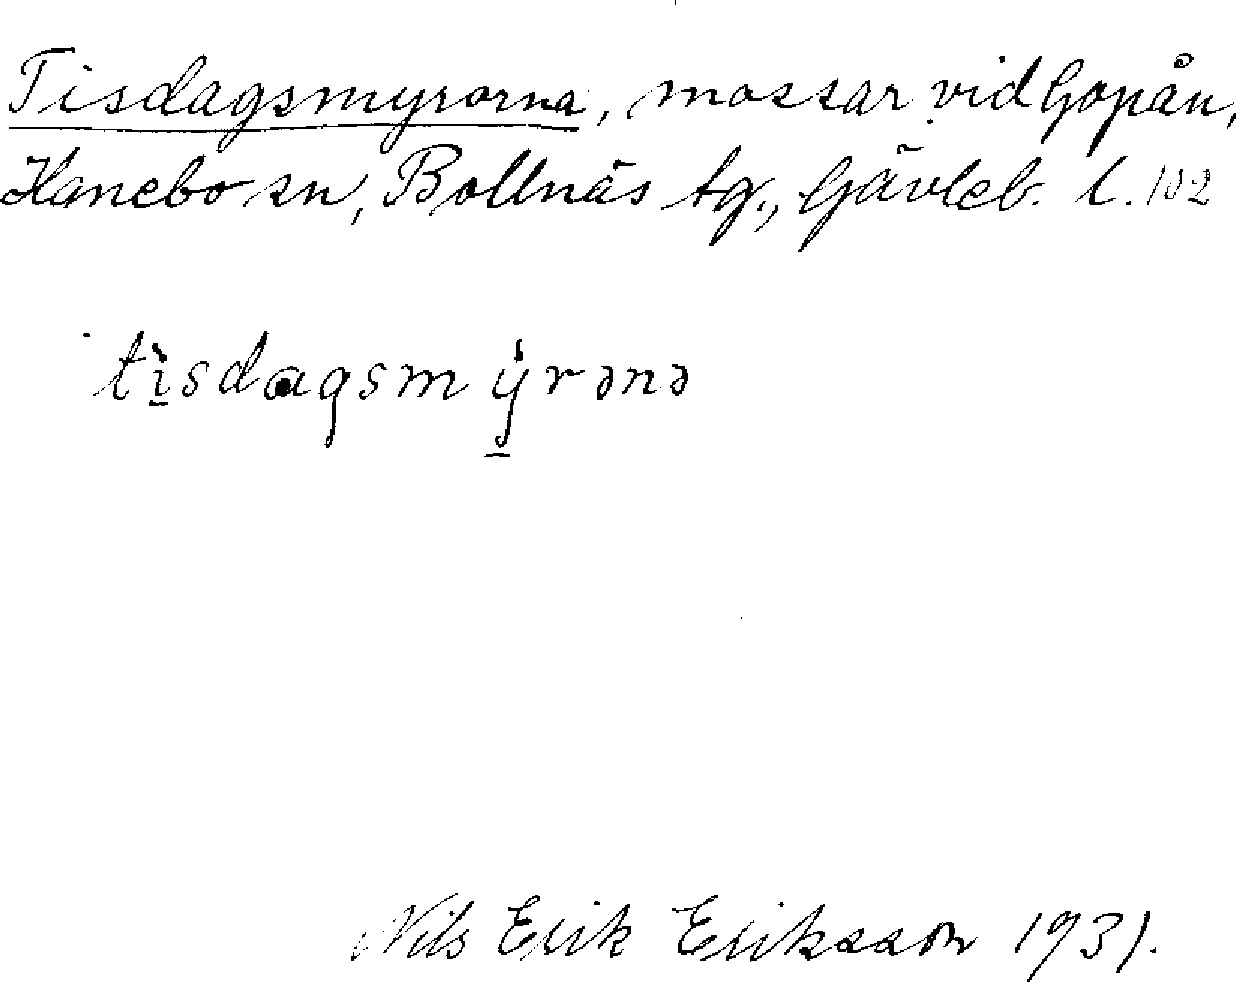 Tisdagsmyrorna, mossar vid Gopån,
Hanebo sn, Bollnäs tg., Gävleb. l. 102
tìsdagsmýrənə
Nils Erik Eriksson 1931.